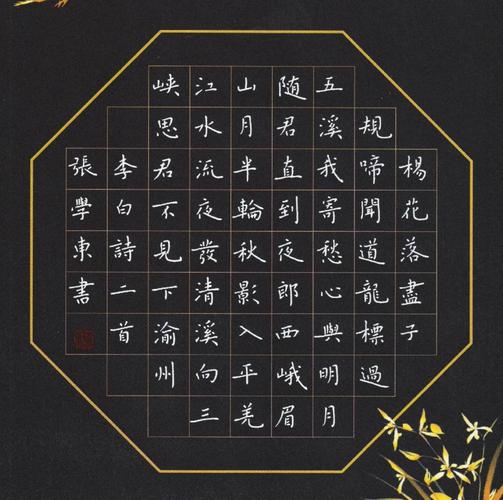 楊花落盡子
規啼聞道龍標過
五溪我寄愁心與明月
隨君直到夜郎西峨眉
山月半輪秋影入平羌
江水流夜發清溪向三
峽思君不見下渝州
李白詩二首
張學東書